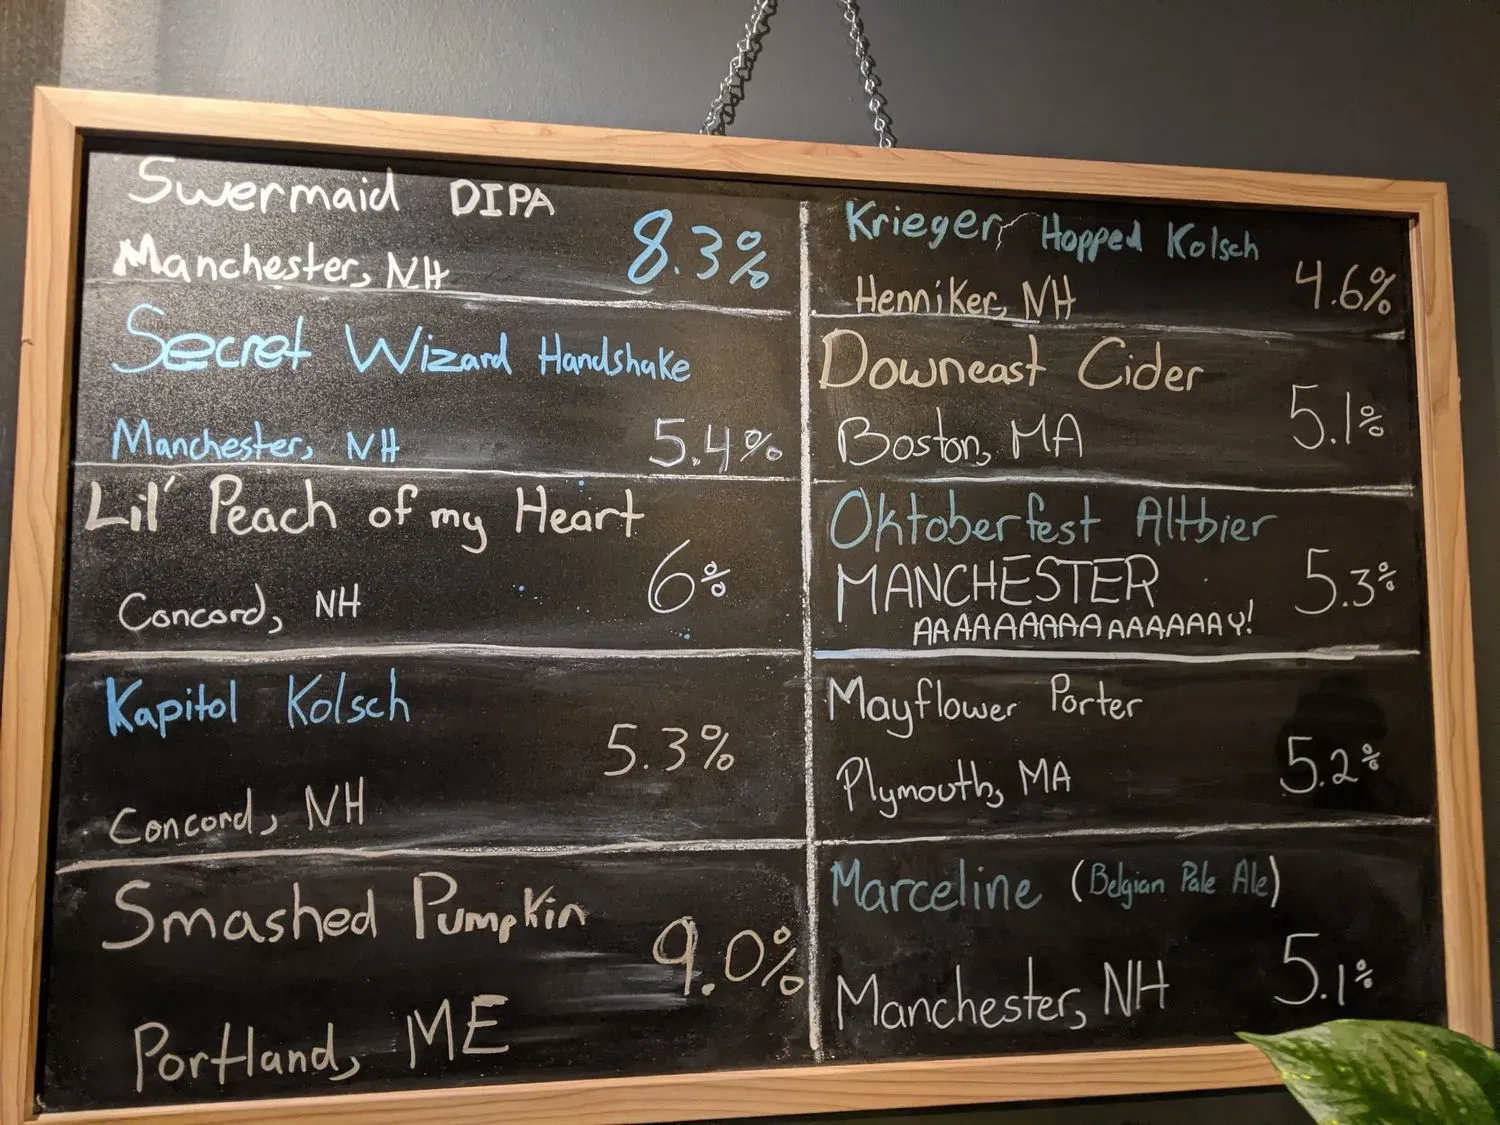 Swermaid DIPA
Manchester, NH
8.3%
Secret Wizard Handshake
Manchester, NH
5.4%
Lil' Peach of my Heart
Concord, NH
6%
Kapitol Kolsch
Concord, NH
5.3%
Smashed Pumpkin
Portland, ME
9.0%
Krieger Hopped Kolsch
Henniker, NH
4.6%
Downeast Cider
Boston, MA
5.1%
Oktoberfest Altbier
MANCHESTER
AAAAAAAAAAAAAAAY!
5.3%
Mayflower Porter
Plymouth, MA
5.2%
Marceline (Belgian Pale Ale)
Manchester, NH
5.1%